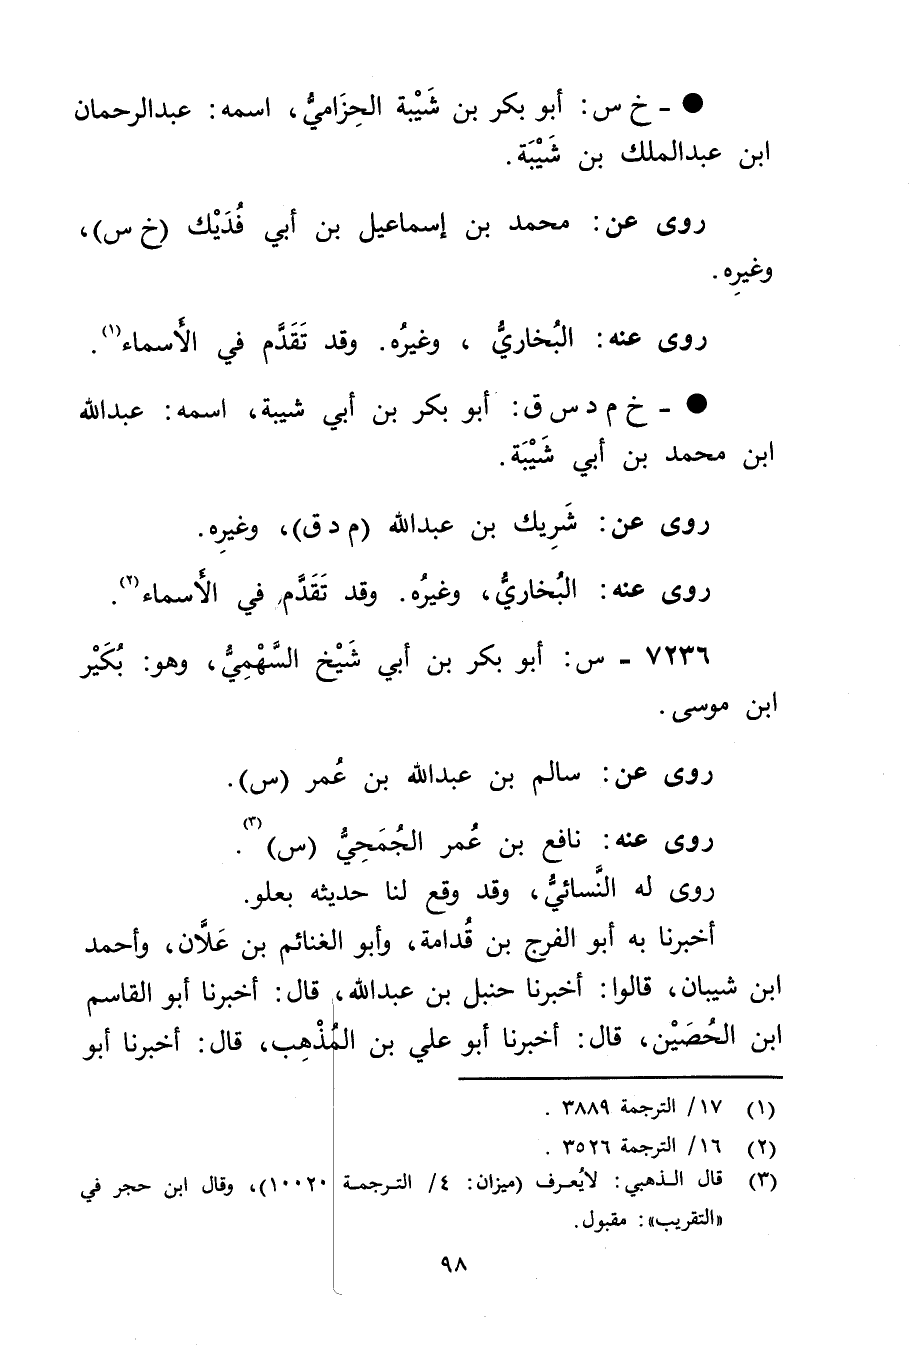 ● ـ خ س: أبو بكر بن شَيْبة الحِزَاميُّ، اسمه: عبدالرحمان
ابن عبدالملك بن شَيْبَة.
روى عن: محمد بن إسماعيل بن أبي فُدَيْك (خ س)،
وغيرِه.
روى عنه: البُخاريُّ ، وغيرُه. وقد تَقَدَّم في الأَسماء(١).
● ـ خ م د س ق: أبو بكر بن أبي شيبة، اسمه: عبدالله
ابن محمد بن أبي شَيْبَة.
روى عن: شَرِيك بن عبدالله (م د ق)، وغيرِه.
روى عنه: البُخاريُّ، وغيرُه. وقد تَقَدَّم في الأَسماء(٢).
٧٢٣٦ ـ س: أبو بكر بن أبي شَيْخ السَّهْمِيُّ، وهو: بُكَيْر
ابن موسى.
روى عن: سالم بن عبدالله بن عُمر (س).
روى عنه: نافع بن عُمر الجُمَحِيُّ (س)(٣).
روى له النَّسائيُّ، وقد وقع لنا حديثه بعلو.
أخبرنا به أبو الفرج بن قُدامة، وأبو الغنائم بن عَلاَّن، وأحمد
ابن شيبان، قالوا: أخبرنا حنبل بن عبدالله، قال: أخبرنا أبو القاسم
ابن الحُصَيْن، قال: أخبرنا أبو علي بن المُذْهِب، قال: أخبرنا أبو
(١) ١٧/ الترجمة ٣٨٨٩ .
(٢) ١٦/ الترجمة ٣٥٢٦ .
(٣) قال الذهبي: لايُعرف (ميزان: ٤/ الترجمة ١٠٠٢٠)، وقال ابن حجر في
«التقريب»: مقبول.
٩٨